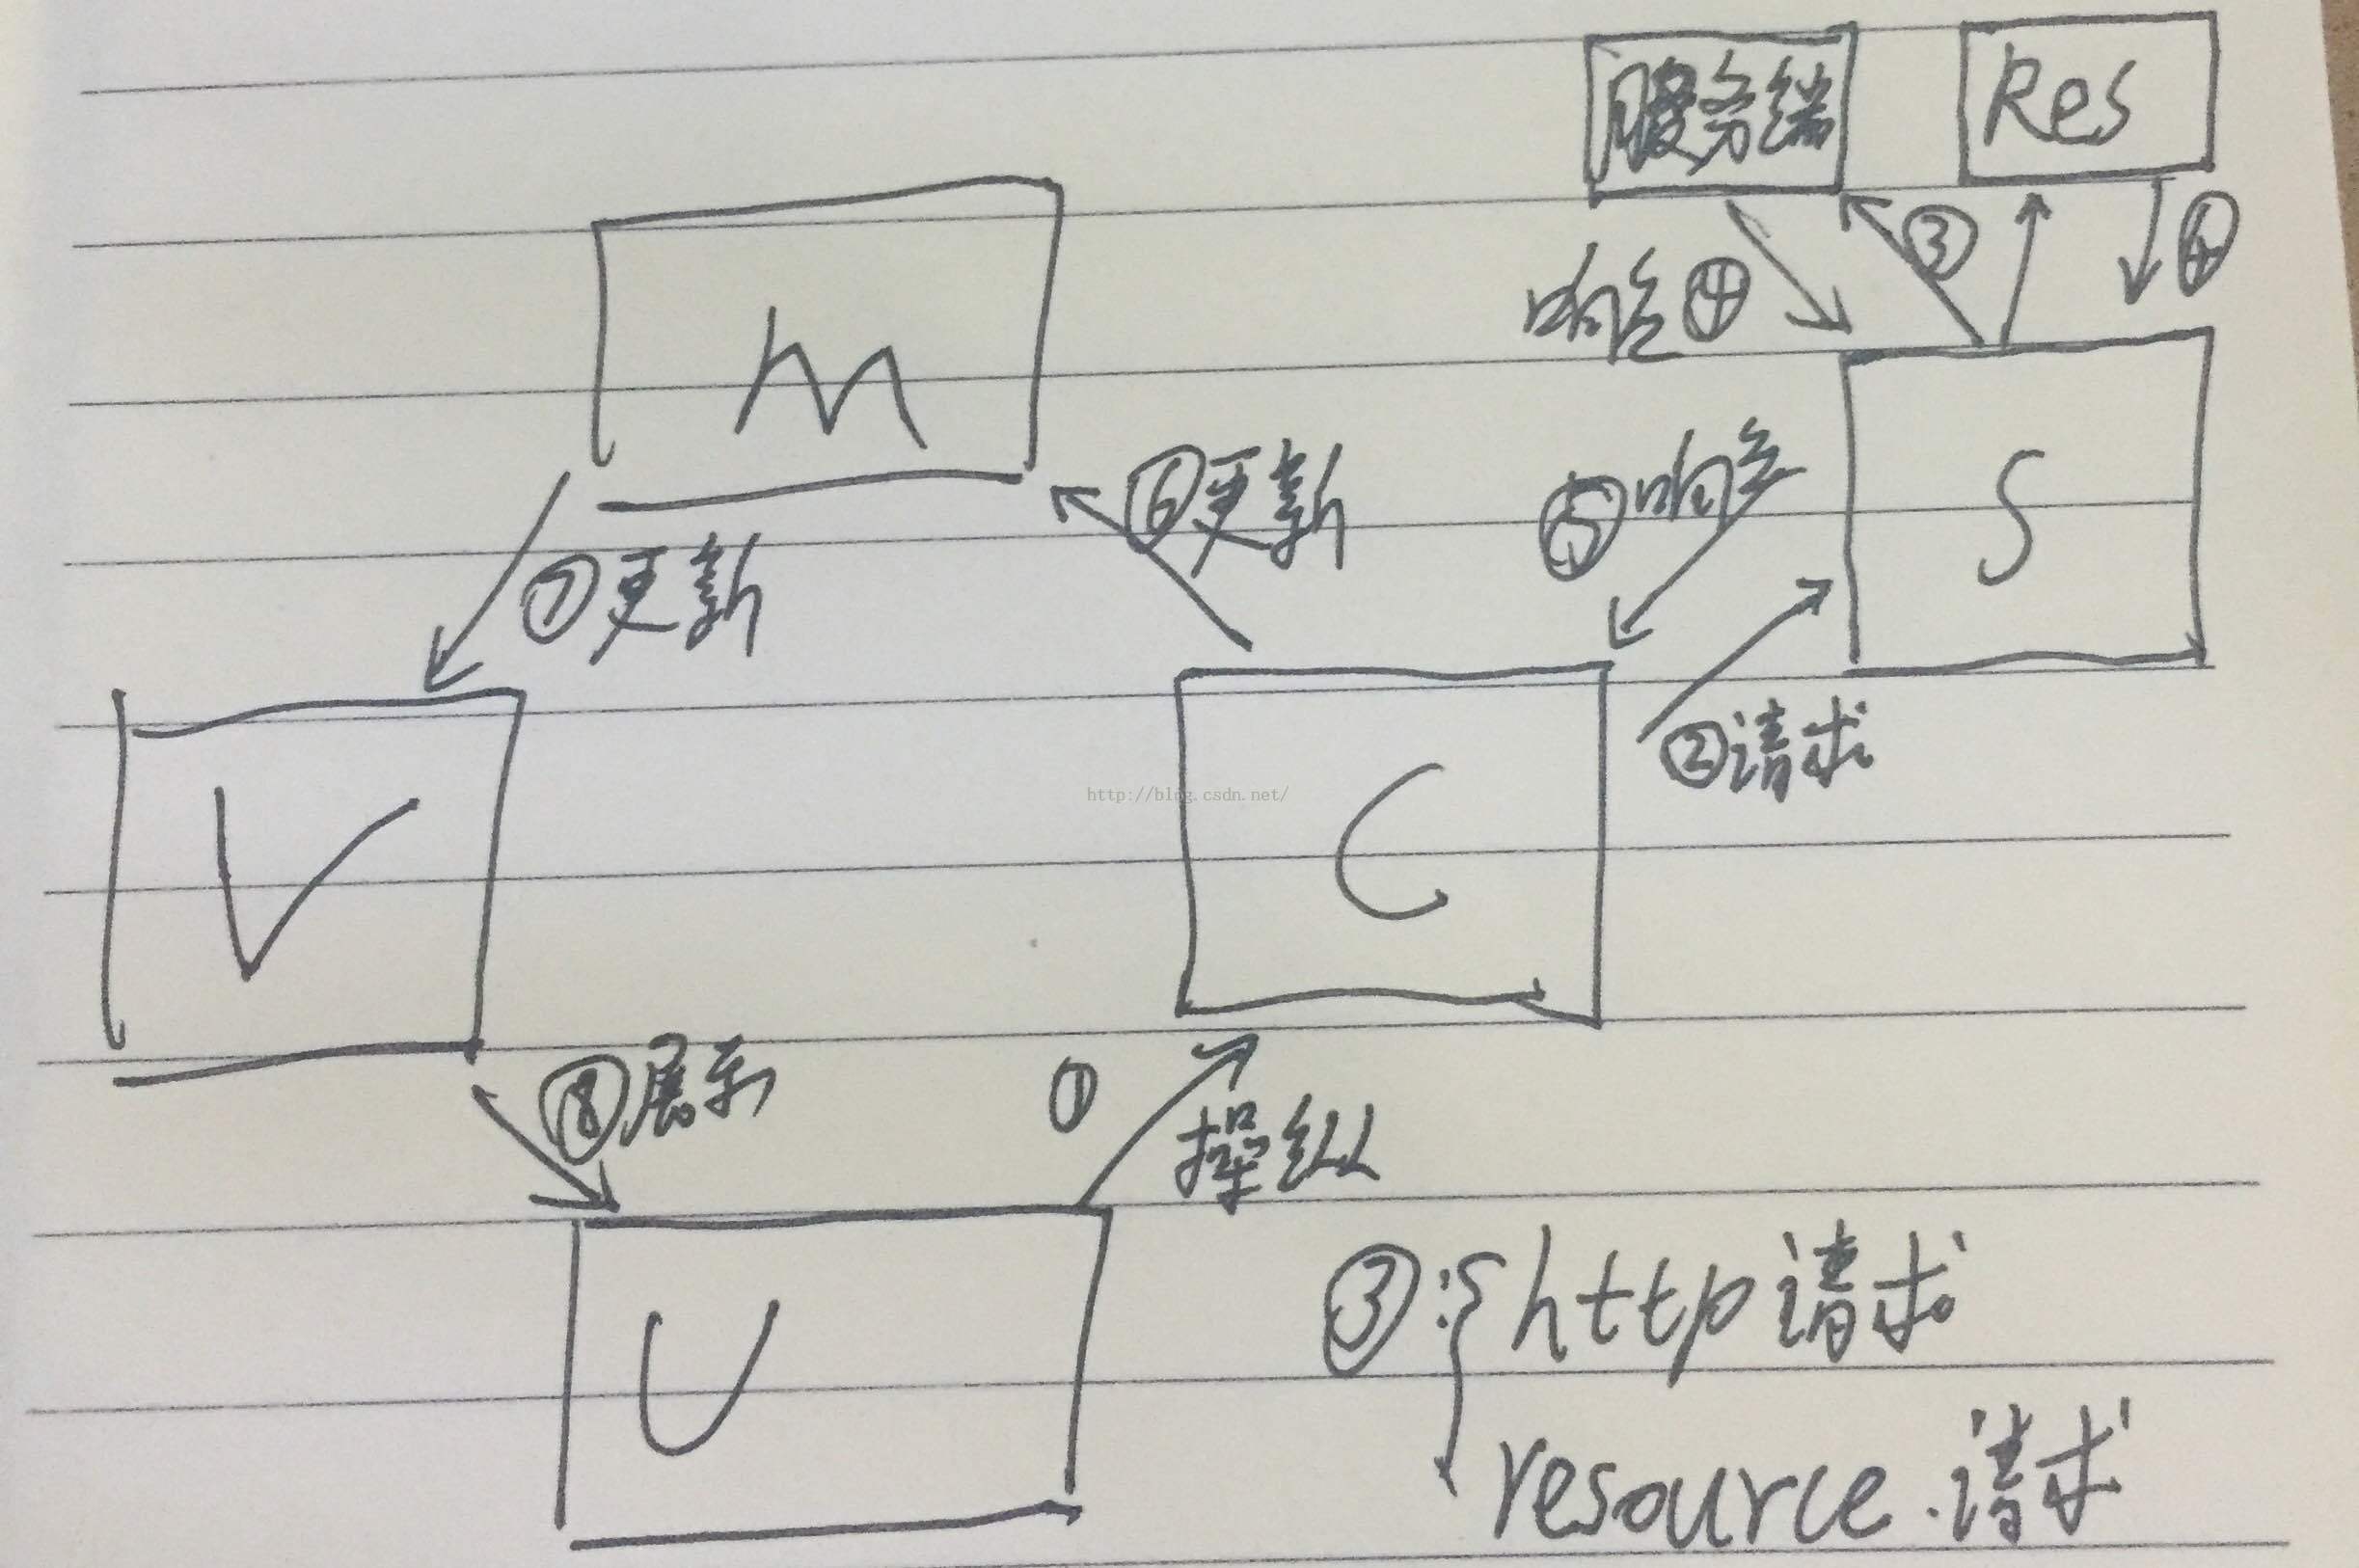 服务端
Res
③
④
响应④
M
S
⑥更新
⑤响应
⑦更新
②请求
V
C
http://blog.csdn.net/
⑧展示
①
操纵
U
③:{http请求
resource.请求